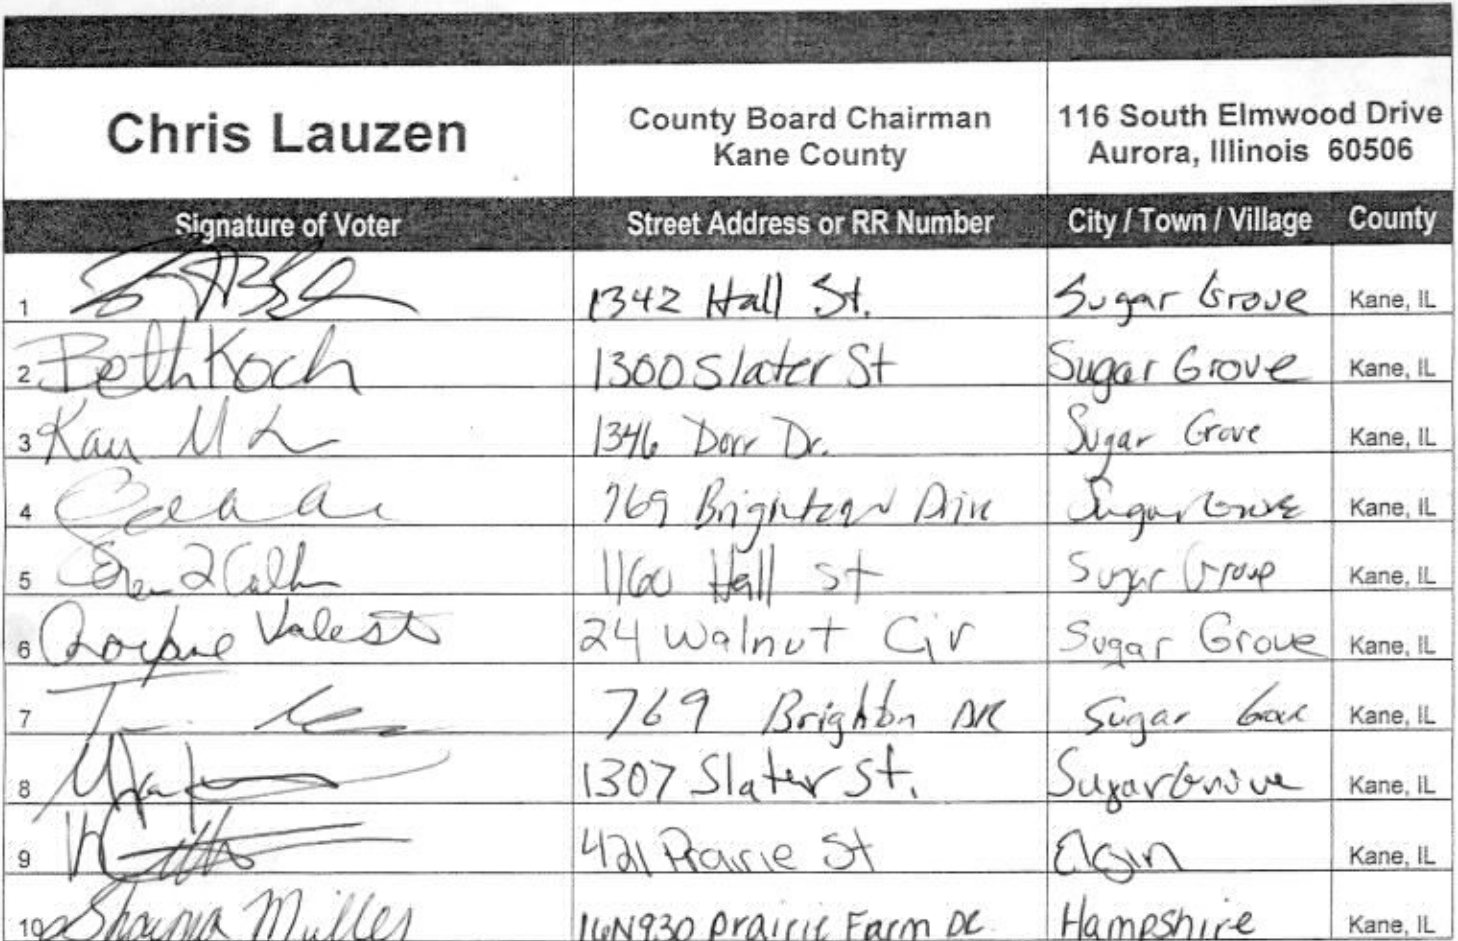 Chris Lauzen County Board Chairman 116 South Elmwood Drive
Kane County Aurora, Illinois 60506
Signature of Voter Street Address or RR Number City / Town / Village County
1 1342 Hall St. Sugar Grove Kane, IL
2 Beth Koch 1300 Slater St Sugar Grove Kane, IL
3 1346 Dorr Dr. Sugar Grove Kane, IL
4 769 Drive Sugar Grove Kane, IL
5 1160 Hall St Sugar Grove Kane, IL
6 24 Walnut Cir Sugar Grove Kane, IL
7 769 Brighton DR Sugar Grove Kane, IL
8 1307 Slater St. Sugar Grove Kane, IL
9 421 Prairie St Elgin Kane, IL
10 16N930 Prairie Farm DR Hampshire Kane, IL